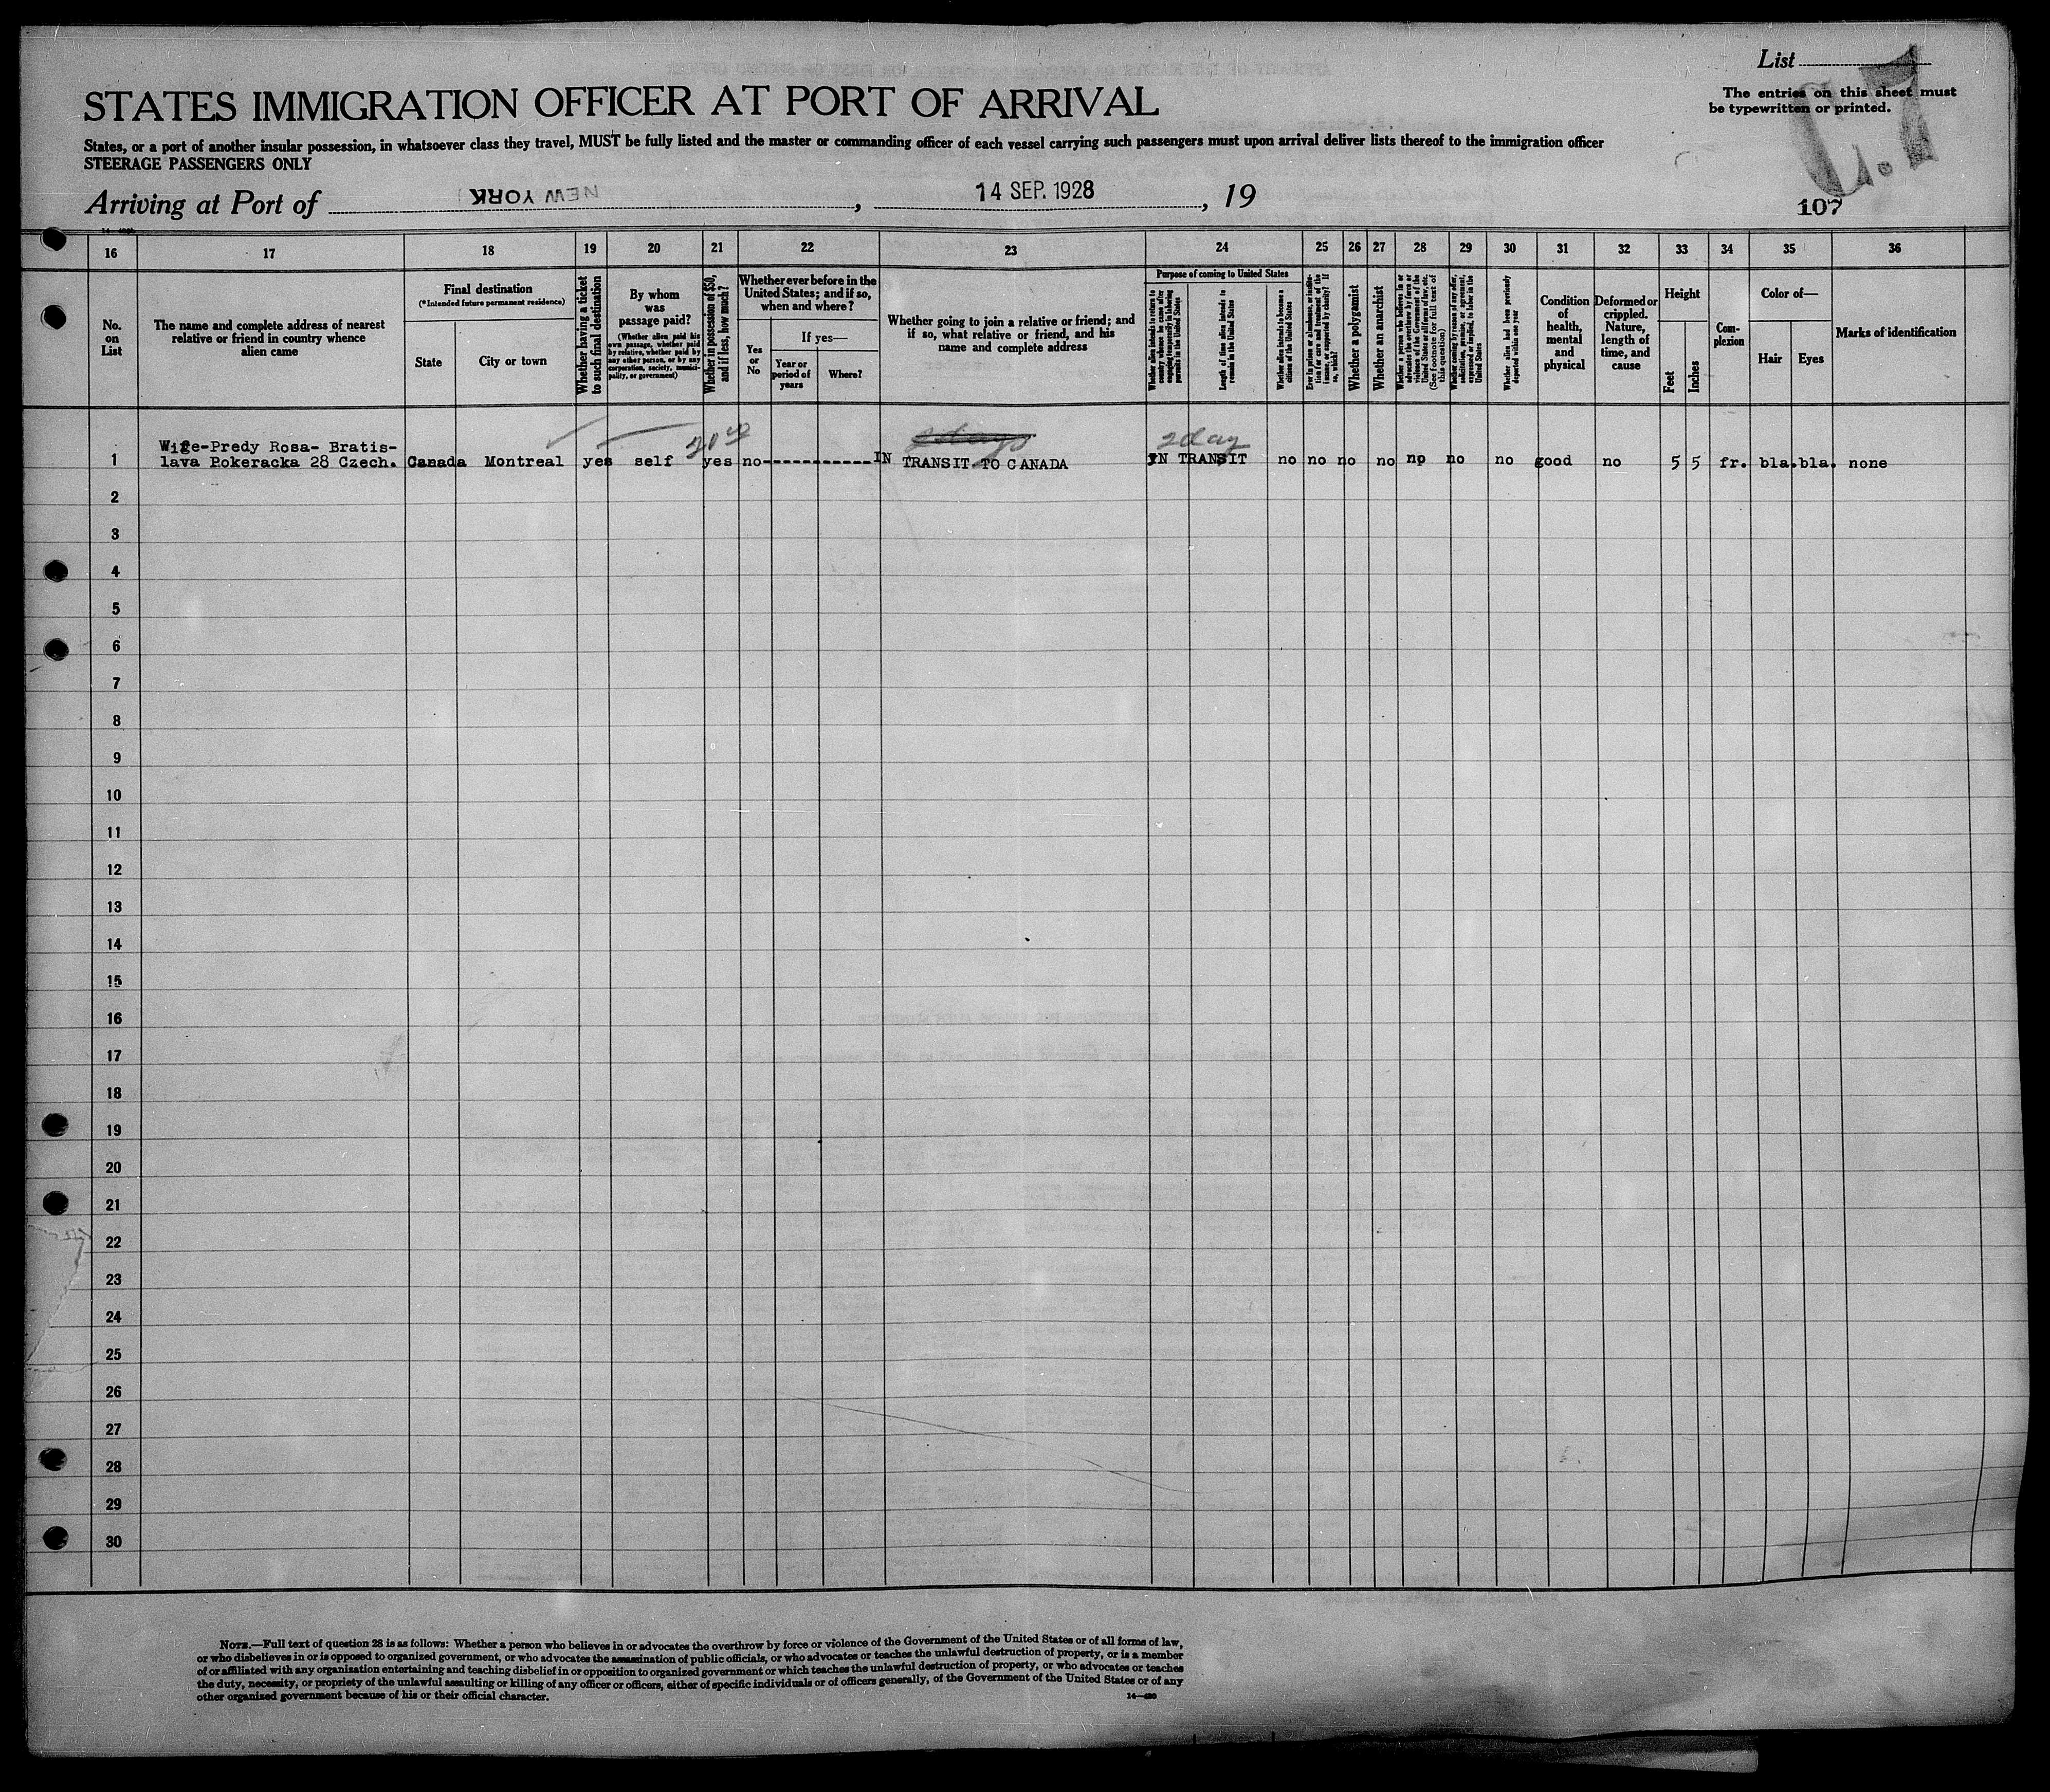 List
The entries on this sheet must
be typewritten or printed.
STATES IMMIGRATION OFFICER AT PORT OF ARRIVAL
States, or a port of another insular possession, in whatsoever class they travel, MUST be fully listed and the master or commanding officer of each vessel carrying such passengers must upon arrival deliver lists thereof to the immigration officer
STEERAGE PASSENGERS ONLY
Arriving at Port of NEW YORK, 14 SEP. 1928, 19
107
16 17 18 19 20 21 22 23 24 25 26 27 28 29 30 31 32 33 34 35 36
No.
on
List
The name and complete address of nearest
relative or friend in country whence
alien came
Final destination
(*Intended future permanent residence)
State
City or town
Whether having a ticket
to such final destination
By whom
was
passage paid?
(Whether alien paid his
own passage, whether paid
by relative, whether paid by
any other person, or by any
corporation, society, munici-
pality, or government)
Whether in possession of $50,
and if less, how much?
Whether ever before in the
United States; and if so,
when and where?
Yes
or
No
If yes—
Year or
period of
years
Where?
Whether going to join a relative or friend; and
if so, what relative or friend, and his
name and complete address
Purpose of coming to United States
Whether alien intends to return to
country whence he came after
engaging temporarily in laboring
pursuits in the United States
Length of time alien intends to
remain in the United States
Whether alien intends to become a
citizen of the United States
Ever in prison or almshouse, or institu-
tion for care and treatment of the
insane, or supported by charity? If
so, which?
Whether a polygamist
Whether an anarchist
Whether a person who believes in or
advocates the overthrow by force or
violence of the Government of the
United States or all forms of law, etc.
(See footnote for full text of
this question)
Whether coming by reason of any offer,
solicitation, promise, or agreement,
expressed or implied, to labor in the
United States
Whether alien had been previously
deported within one year
Condition
of
health,
mental
and
physical
Deformed or
crippled.
Nature,
length of
time, and
cause
Height
Feet
Inches
Com-
plexion
Color of—
Hair
Eyes
Marks of identification
2 days
2 day
Wife-Predy Rosa- Bratis-
1 lava Pokeracka 28 Czech. Canada Montreal yes self yes no------------IN TRANSIT TO CANADA IN TRANSIT no no no no np no no good no 5 5 fr. bla. bla. none
2
3
4
5
6
7
8
9
10
11
12
13
14
15
16
17
18
19
20
21
22
23
24
25
26
27
28
29
30
NOTE.—Full text of question 28 is as follows: Whether a person who believes in or advocates the overthrow by force or violence of the Government of the United States or of all forms of law,
or who disbelieves in or is opposed to organized government, or who advocates the assassination of public officials, or who advocates or teaches the unlawful destruction of property, or is a member
of or affiliated with any organization entertaining and teaching disbelief in or opposition to organized government or which teaches the unlawful destruction of property, or who advocates or teaches
the duty, necessity, or propriety of the unlawful assaulting or killing of any officer or officers, either of specific individuals or of officers generally, of the Government of the United States or of any
other organized government because of his or their official character.
14—480